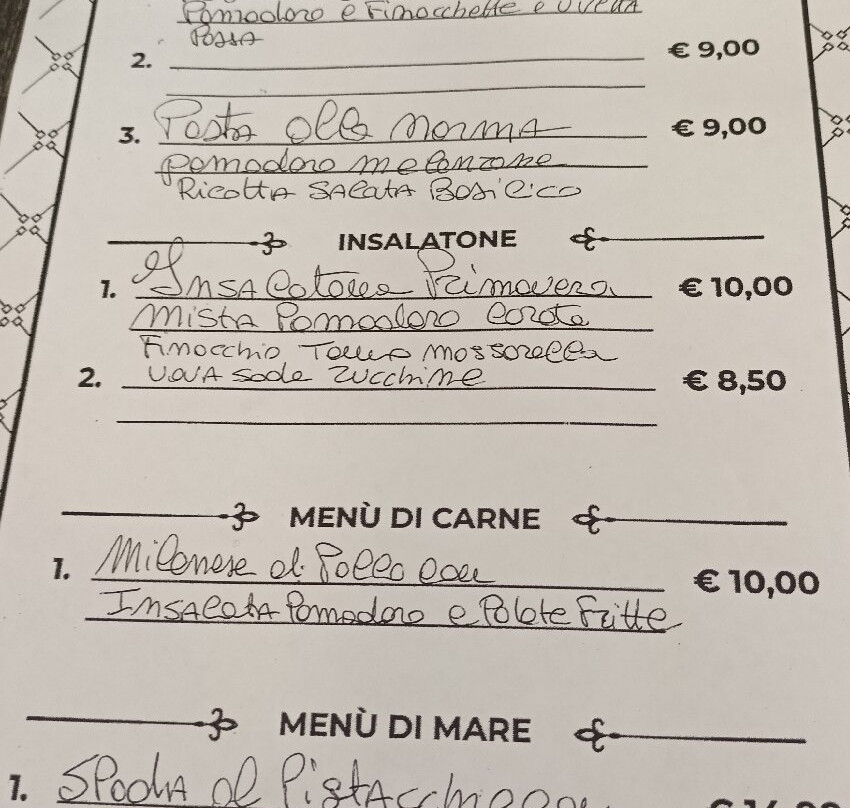 Pomodoro e Finocchette e Uvetta
Passa
2. € 9,00
3. Pasta alla norma € 9,00
pomodoro melanzane
Ricotta Salata Basilico
INSALATONE
1. Insalatona Primavera € 10,00
Mista Pomodoro Carote
Finocchio Tonno Mozzarella
2. Uova sode Zucchine € 8,50
MENÙ DI CARNE
1. Milanese di Pollo con € 10,00
Insalata Pomodoro e Patate Fritte
MENÙ DI MARE
1. Spada al Pistacchio con